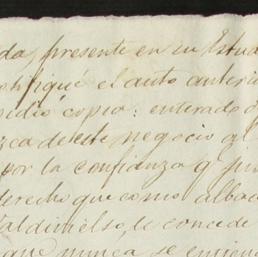 da, presente en su Estud
notifiqué el auto anteri
pidió copia: enterado q
zca de este negocio q
por la confianza q
derecho que como albac
Valdivielso, le concede
que nunca se entien